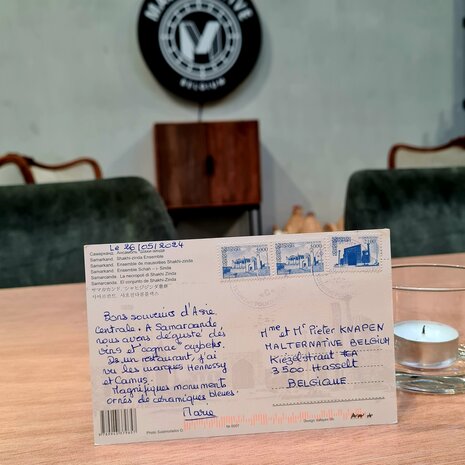 MA
IVE
BELGIUM
Le 26/05/2024
Самарканд. Ансамбль Шахи-Зинда
Samarkand. Shakhi-zinda Ensemble
Samarkand. Ensemble de mausolées Shakhi-zinda
Samarkand. Ensemble Schah - i - Sinda
Samarcanda. La necropoli di Shakhi Zinda
Samarcanda. El conjunto de Shakhi-Zinda
サマルカンド、シャヒジンダ
Bons souvenirs d'Asie
Centrale. A Samarcande,
nous avons dégusté des
vins et cognac ouzbeks.
Ds un restaurant, j'ai
vu les marques Hennessy
et Camus.
Magnifiques monuments
ornés de céramiques bleues.
Marie
Mme et Mr Pieter KNAPEN
MALTERNATIVE BELGIUM
Kiezelstraat
3500 Hasselt
BELGIQUE